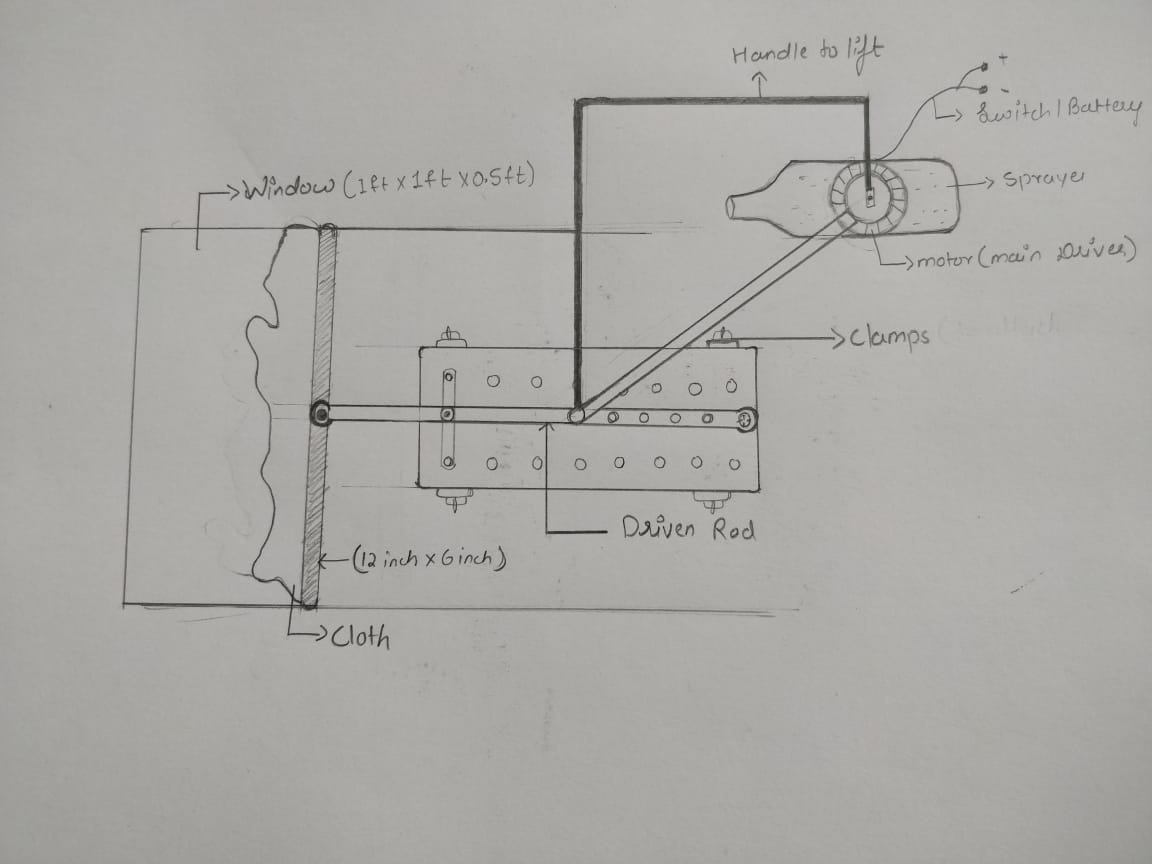 Handle to lift
+
-
Switch / Battery
Window (1ft x 1ft x 0.5ft)
Sprayer
motor (main Driver)
Clamps
Driven Rod
(12 inch x 6 inch)
Cloth